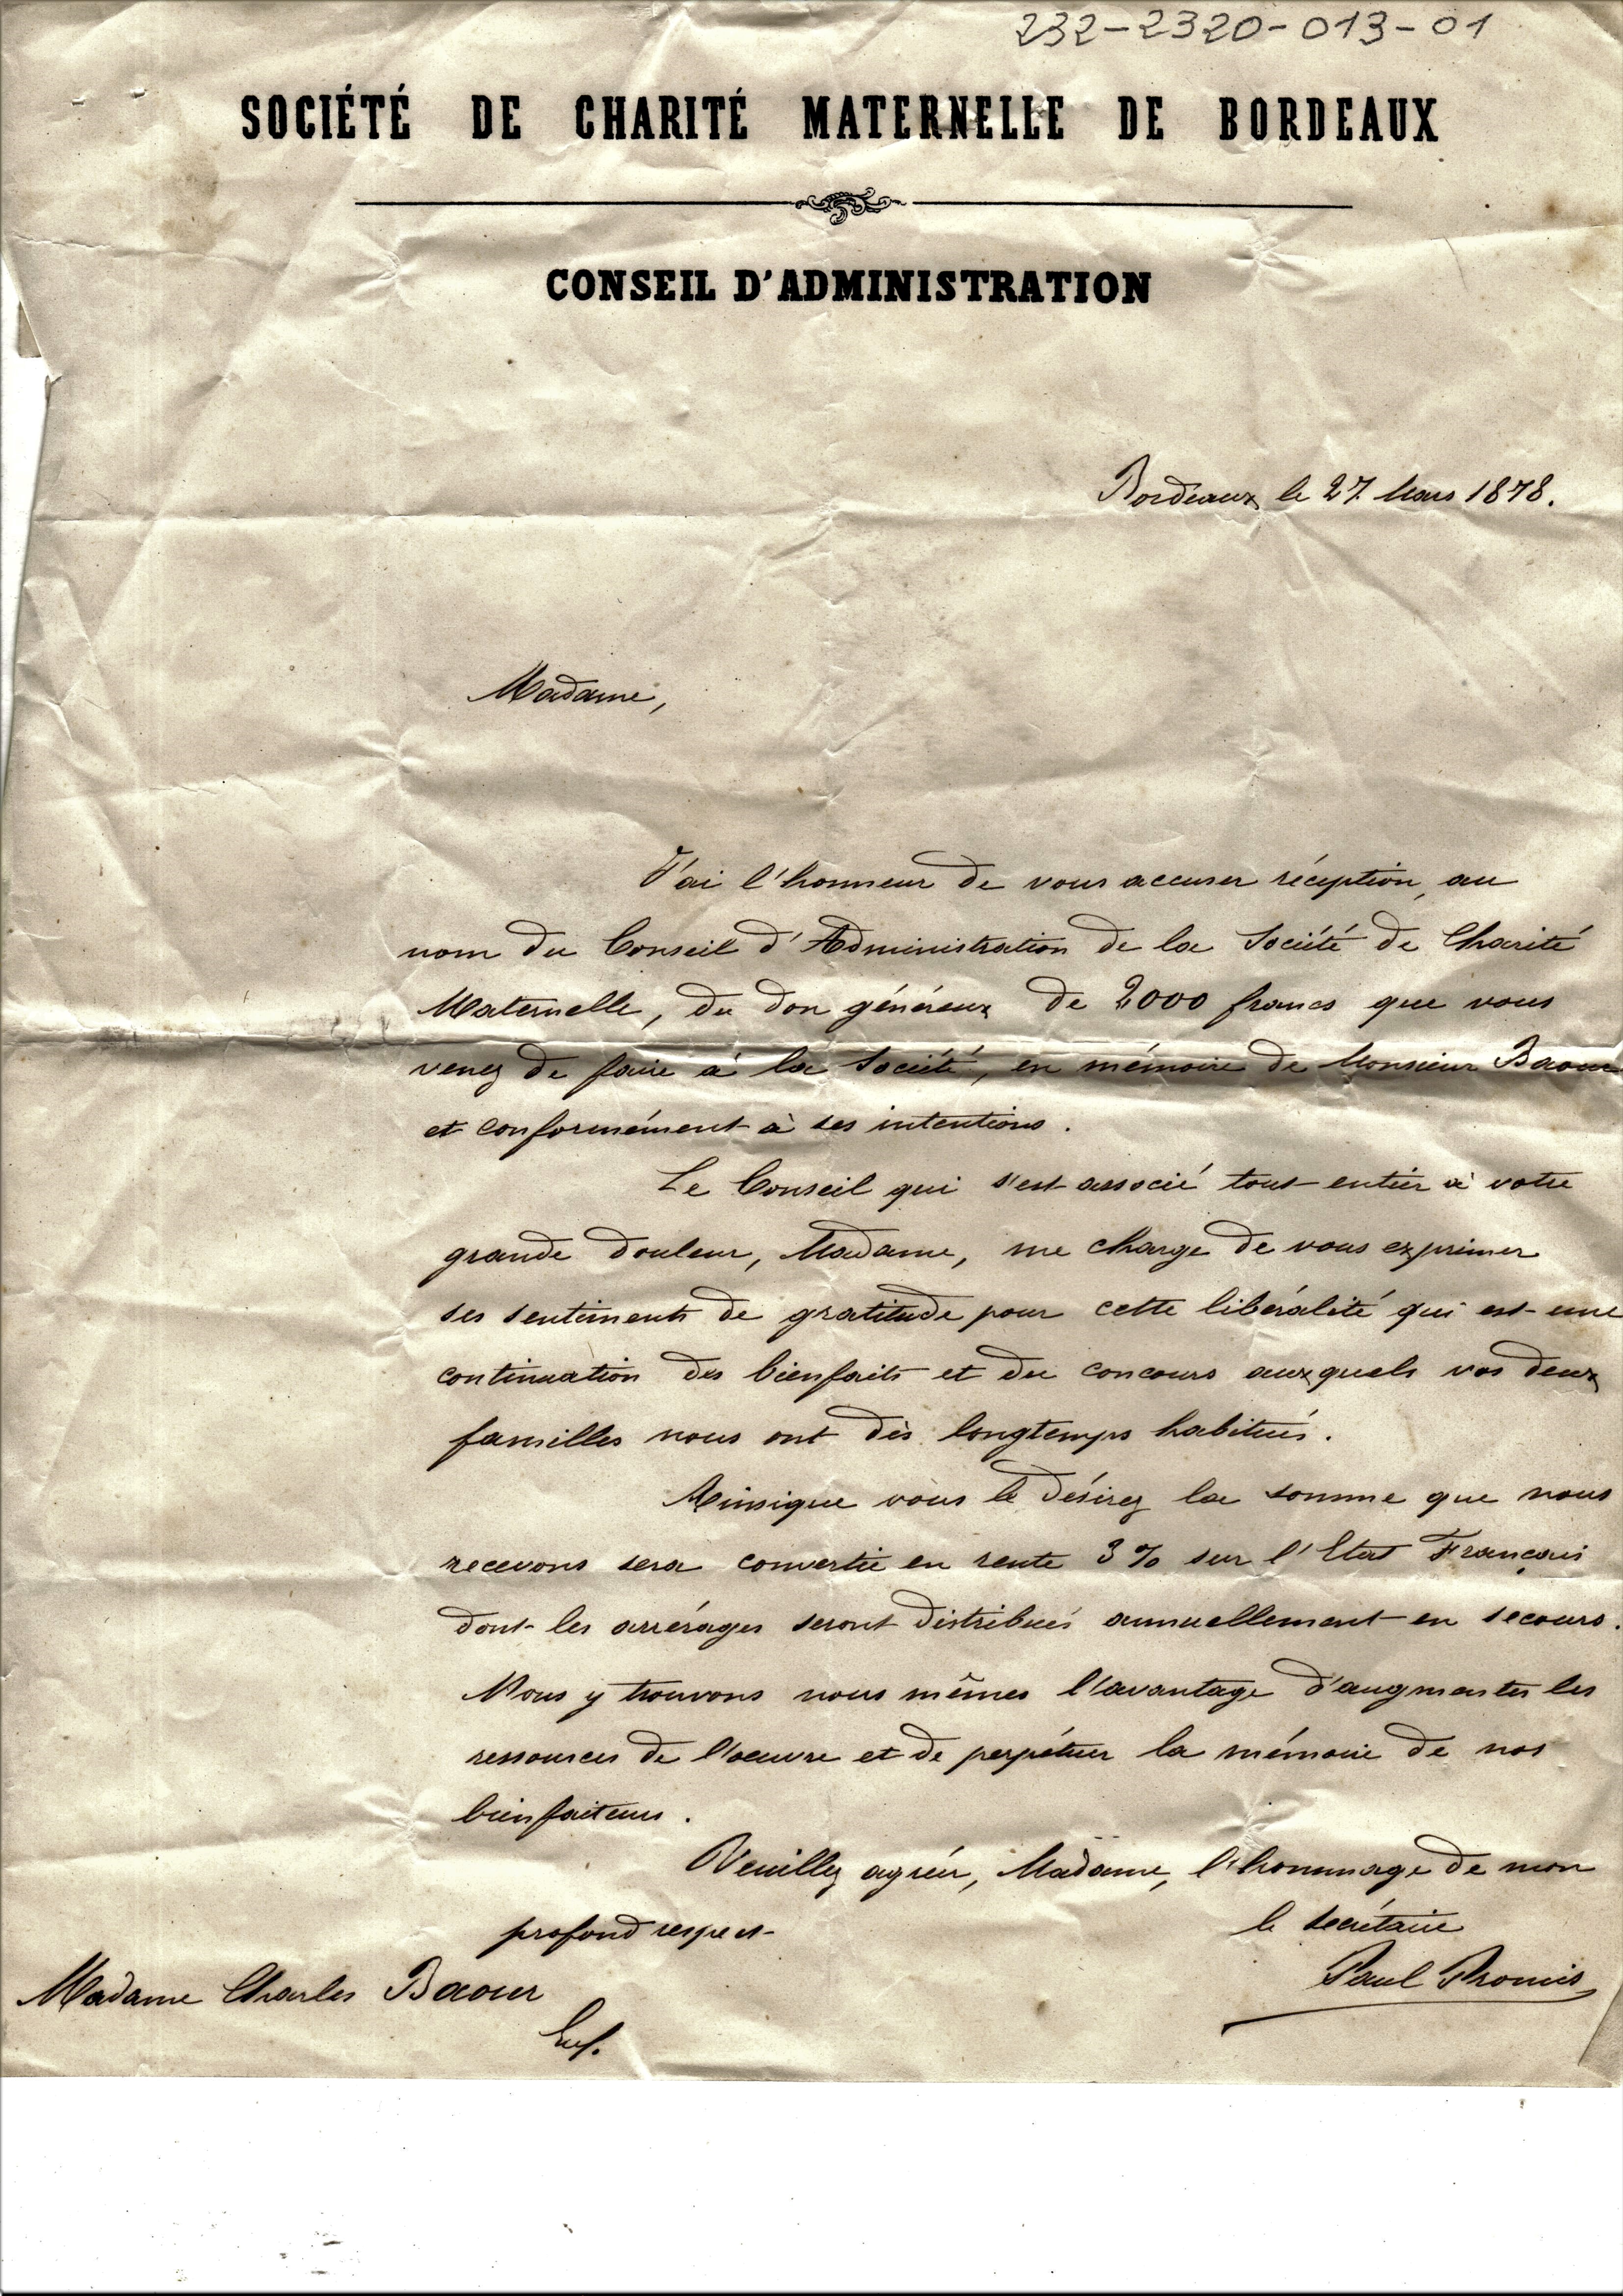 232-2320-013-01
SOCIÉTÉ DE CHARITÉ MATERNELLE DE BORDEAUX
CONSEIL D'ADMINISTRATION
Bordeaux le 27 Mars 1878.
Madame,
J'ai l'honneur de vous accuser réception, au
nom du Conseil d'Administration de la Société de Charité
Maternelle, du don généreux de 2000 francs que vous
venez de faire à la Société, en mémoire de Monsieur Baour
et conformément à ses intentions.
Le Conseil qui s'est associé tout entier à votre
grande douleur, Madame, me charge de vous exprimer
ses sentiments de gratitude pour cette libéralité qui est une
continuation des bienfaits et du concours auxquels vos deux
familles nous ont dès longtemps habitués.
Ainsique vous le désirez la somme que nous
recevons sera convertie en rente 3 % sur l'Etat Français
dont les arrérages seront distribués annuellement en secours.
Nous y trouvons nous mêmes l'avantage d'augmenter les
ressources de l'oeuvre et de perpétuer la mémoire de nos
bienfaiteurs.
Veuillez agréer, Madame, l'hommage de mon
profond respect
le secrétaire
Paul Promis
Madame Charles Baour